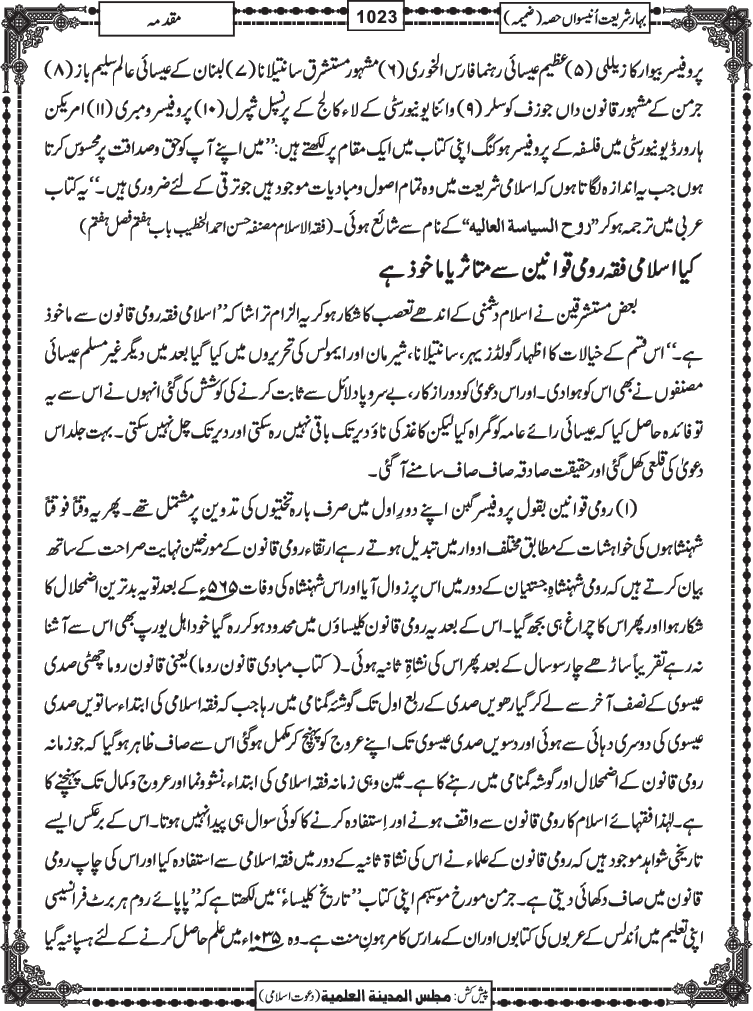 بہارِ شریعت اُنیسواں حصہ (ضمیمہ)
1023
مقدمہ
پروفیسر بیوار کازیللی (۵) عظیم عیسائی رہنما فارس الخوری (۶) مشہور مستشرق سانتیلانا (۷) لبنان کے عیسائی عالم سلیم باز (۸)
جرمن کے مشہور قانون داں جوزف کوسلر (۹) وائنا یونیورسٹی کے لاء کالج کے پرنسپل شپرل (۱۰) پروفیسر ومبری (۱۱) امریکن
ہارورڈ یونیورسٹی میں فلسفہ کے پروفیسر ہوکنگ اپنی کتاب میں ایک مقام پر لکھتے ہیں: ’’میں اپنے آپ کو حق و صداقت پر محسوس کرتا
ہوں جب یہ اندازہ لگاتا ہوں کہ اسلامی شریعت میں وہ تمام اصول و مبادیات موجود ہیں جو ترقی کے لئے ضروری ہیں۔‘‘ یہ کتاب
عربی میں ترجمہ ہو کر ’’روح السياسة العاليه‘‘ کے نام سے شائع ہوئی۔ (فقہ الاسلام مصنفہ حسن احمد الخطیب باب ہفتم فصل ہفتم)
کیا اسلامی فقہ رومی قوانین سے متاثر یا ماخوذ ہے
بعض مستشرقین نے اسلام دشمنی کے اندھے تعصب کا شکار ہو کر یہ الزام تراشا کہ ’’اسلامی فقہ رومی قانون سے ماخوذ
ہے۔‘‘ اس قسم کے خیالات کا اظہار گولڈزیہر، سانتیلانا، شیرمان اور ایمولس کی تحریروں میں کیا گیا بعد میں دیگر غیر مسلم عیسائی
مصنفوں نے بھی اس کو ہوا دی۔ اور اس دعویٰ کو دور از کار، بے سروپا دلائل سے ثابت کرنے کی کوشش کی گئی انہوں نے اس سے یہ
تو فائدہ حاصل کیا کہ عیسائی رائے عامہ کو گمراہ کیا لیکن کاغذ کی ناؤ دیر تک باقی نہیں رہ سکتی اور دیر تک چل نہیں سکتی۔ بہت جلد اس
دعویٰ کی قلعی کھل گئی اور حقیقت صادقہ صاف صاف سامنے آ گئی۔
(۱) رومی قوانین بقول پروفیسر گبن اپنے دورِ اول میں صرف بارہ تختیوں کی تدوین پر مشتمل تھے۔ پھر یہ وقتاً فوقتاً
شہنشاہوں کی خواہشات کے مطابق مختلف ادوار میں تبدیل ہوتے رہے ارتقاء رومی قانون کے مورخین نہایت صراحت کے ساتھ
بیان کرتے ہیں کہ رومی شہنشاہ جسٹنیان کے دور میں اس پر زوال آیا اور اس شہنشاہ کی وفات ۵۶۵ء کے بعد تو یہ بدترین اضمحلال کا
شکار ہوا اور پھر اس کا چراغ ہی بجھ گیا۔ اس کے بعد یہ رومی قانون کلیساؤں میں محدود ہو کر رہ گیا خود اہل یورپ بھی اس سے آشنا
نہ رہے تقریباً ساڑھے چار سو سال کے بعد پھر اس کی نشاۃِ ثانیہ ہوئی۔ (کتاب مبادی قانون روما) یعنی قانون روما چھٹی صدی
عیسوی کے نصف آخر سے لے کر گیارھویں صدی کے ربع اول تک گوشۂ گمنامی میں رہا جب کہ فقہ اسلامی کی ابتداء ساتویں صدی
عیسوی کی دوسری دہائی سے ہوئی اور دسویں صدی عیسوی تک اپنے عروج کو پہنچ کر مکمل ہو گئی اس سے صاف ظاہر ہو گیا کہ جو زمانہ
رومی قانون کے اضمحلال اور گوشہ گمنامی میں رہنے کا ہے۔ عین وہی زمانہ فقہ اسلامی کی ابتداء، نشوونما اور عروج و کمال تک پہنچنے کا
ہے۔ لہٰذا فقہائے اسلام کا رومی قانون سے واقف ہونے اور اِستفادہ کرنے کا کوئی سوال ہی پیدا نہیں ہوتا۔ اس کے برعکس ایسے
تاریخی شواہد موجود ہیں کہ رومی قانون کے علماء نے اس کی نشاۃ ثانیہ کے دور میں فقہ اسلامی سے استفادہ کیا اور اس کی چاپ رومی
قانون میں صاف دکھائی دیتی ہے۔ جرمن مورخ موسیہم اپنی کتاب ’’تاریخ کلیساء‘‘ میں لکھتا ہے کہ ’’پاپائے روم ہربرٹ فرانسیسی
اپنی تعلیم میں اُندلس کے عربوں کی کتابوں اور ان کے مدارس کا مرہونِ منت ہے۔ وہ ۱۰۳۵ء میں علم حاصل کرنے کے لئے ہسپانیہ گیا
پیش کش: مجلس المدينة العلمية (دعوت اسلامی)